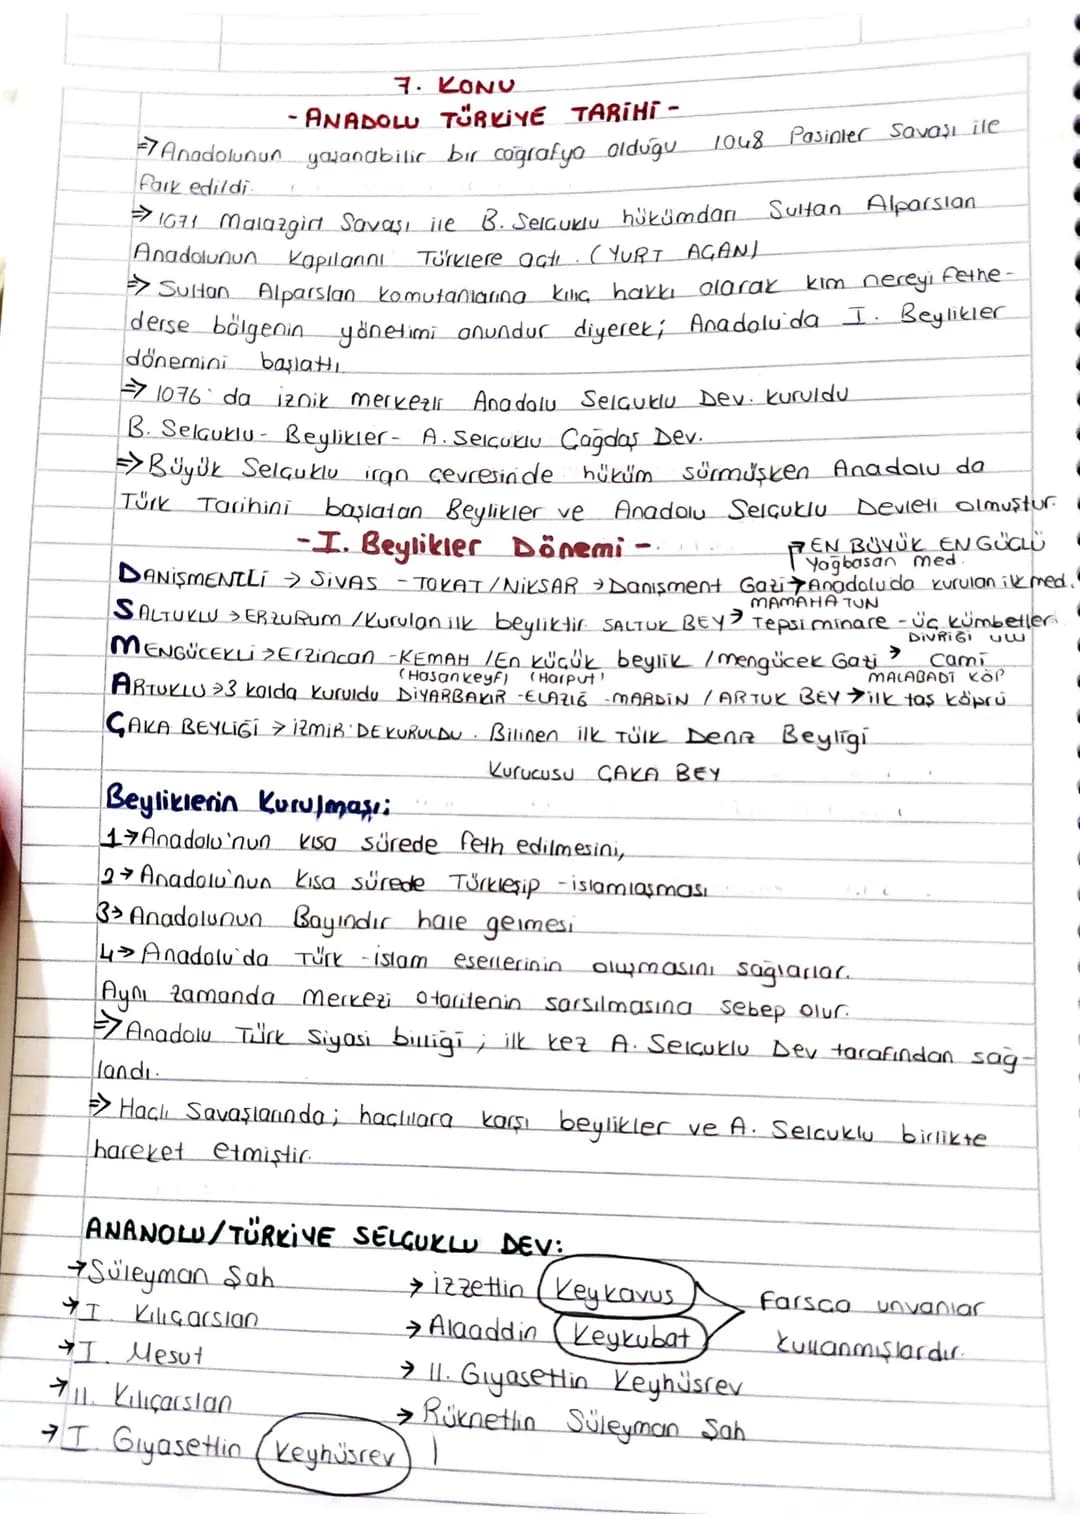 7. KONU
- ANADOLU TÜRKİYE TARİHİ -
⇒ Anadolunun yaşanabilir bir coğrafya olduğu 1048 Pasinler Savaşı ile
fark edildi.
⇒ 1071 Malazgirt Savaşı ile B. Selçuklu hükümdarı Sultan Alparslan
Anadolunun Kapılarını Türklere açtı. (YURT AÇAN)
⇒ Sultan Alparslan komutanlarına kılıç hakkı olarak kim nereyi fethe-
derse bölgenin yönetimi onundur diyerek; Anadolu'da I. Beylikler
dönemini başlattı
⇒ 1076'da iznik merkezli Anadolu Selçuklu Dev. kuruldu
B. Selçuklu - Beylikler - A. Selçuklu Çağdaş Dev.
⇒ Büyük Selçuklu iran çevresinde hüküm sürmüşken Anadolu da
Türk Tarihini başlatan Beylikler ve Anadolu Selçuklu Devleti olmuştur.
- I. Beylikler Dönemi -
→ EN BÜYÜK EN GÜÇLÜ
Yağıbasan med.
DANİŞMENTLİ → SİVAS - TOKAT/NİKSAR → Danişment Gazi → Anadoluda kurulan ilk med.
MAMAHATUN
SALTUKLU → ERZURUM / Kurulan ilk beyliktir SALTUK BEY → Tepsi minare - üç kümbetler
DİVRİĞİ ULU
MENGÜCEKLİ → Erzincan - KEMAH / En küçük beylik / mengücek Gazi → Cami
(Hasankeyf) (Harput) MALABADİ KÖP
ARTUKLU → 3 kolda kuruldu DİYARBAKIR - ELAZIĞ - MARDİN / ARTUK BEY → ilk taş köprü
ÇAKA BEYLİĞİ → İZMİR'DE KURULDU. Bilinen ilk Türk Deniz Beyliği
Kurucusu ÇAKA BEY
Beyliklerin Kurulması;
1→ Anadolu'nun kısa sürede feth edilmesini,
2→ Anadolu'nun Kısa sürede Türkleşip - islamlaşması
3→ Anadolunun Bayındır hale gelmesi
4→ Anadolu'da Türk - islam eserlerinin oluşmasını sağlarlar.
Aynı zamanda merkezi otoritenin sarsılmasına sebep olur.
⇒ Anadolu Türk Siyasi birliği; ilk kez A. Selçuklu Dev tarafından sağ-
landı.
⇒ Haçlı Savaşlarında; haçlılara karşı beylikler ve A. Selçuklu birlikte
hareket etmiştir.
ANANOLU/TÜRKİYE SELÇUKLU DEV:
→ Süleyman Şah
→ I. Kılıçarslan
→ I. Mesut
→ II. Kılıçarslan
→ I. Gıyasettin Keyhüsrev
→ İzzettin Keykavus
→ Alaaddin Keykubat
→ II. Gıyasettin Keyhüsrev
→ Rüknettin Süleyman Şah
Farsça unvanlar
kullanmışlardır.